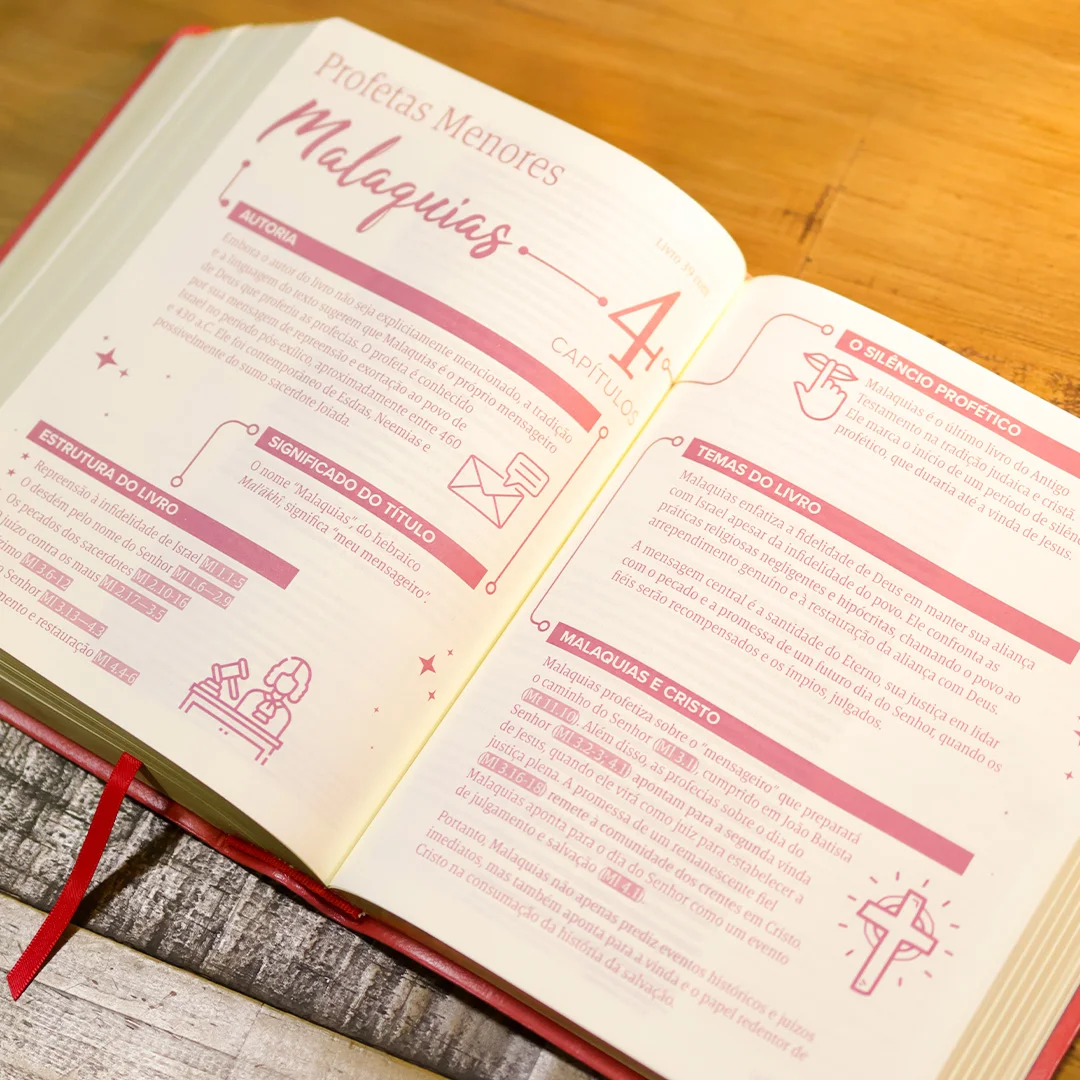 Profetas Menores
Malaquias
Livro 39 com
4
CAPÍTULOS
AUTORIA
Embora o autor do livro não seja explicitamente mencionado, a tradição
e a linguagem do texto sugerem que Malaquias é o próprio mensageiro
de Deus que proferiu as profecias. O profeta é conhecido
por sua mensagem de repreensão e exortação ao povo de
Israel no período pós-exílico, aproximadamente entre 460
e 430 a.C. Ele foi contemporâneo de Esdras, Neemias e
possivelmente do sumo sacerdote Joiada.
ESTRUTURA DO LIVRO
Repreensão à infidelidade de Israel Ml 1.1-5
O desdém pelo nome do Senhor Ml 1.6–2.9
Os pecados dos sacerdotes Ml 2.10-16
juízo contra os maus Ml 2.17–3.5
Ml 3.6-12
o Senhor Ml 3.13–4.3
mento e restauração Ml 4.4-6
SIGNIFICADO DO TÍTULO
O nome "Malaquias", do hebraico
Mal'ākhî, significa "meu mensageiro".
O SILÊNCIO PROFÉTICO
Malaquias é o último livro do Antigo
Testamento na tradição judaica e cristã.
Ele marca o início de um período de silên
profético, que duraria até a vinda de Jesus.
TEMAS DO LIVRO
Malaquias enfatiza a fidelidade de Deus em manter sua aliança
com Israel apesar da infidelidade do povo. Ele confronta as
práticas religiosas negligentes e hipócritas, chamando o povo ao
arrependimento genuíno e à restauração da aliança com Deus.
A mensagem central é a santidade do Eterno, sua justiça em lidar
com o pecado e a promessa de um futuro dia do Senhor, quando os
fiéis serão recompensados e os ímpios, julgados.
MALAQUIAS E CRISTO
Malaquias profetiza sobre o "mensageiro" que preparará
o caminho do Senhor (Ml 3.1), cumprido em João Batista
(Mt 11.10). Além disso, as profecias sobre o dia do
Senhor (Ml 3.2-3; 4.1) apontam para a segunda vinda
de Jesus, quando ele virá como Juiz para estabelecer a
justiça plena. A promessa de um remanescente fiel
(Ml 3.16-18) remete à comunidade dos crentes em Cristo.
Malaquias aponta para o dia do Senhor como um evento
de julgamento e salvação (Ml 4.1).
Portanto, Malaquias não apenas prediz eventos históricos e juízos
imediatos, mas também aponta para a vinda e o papel redentor de
Cristo na consumação da história da salvação.